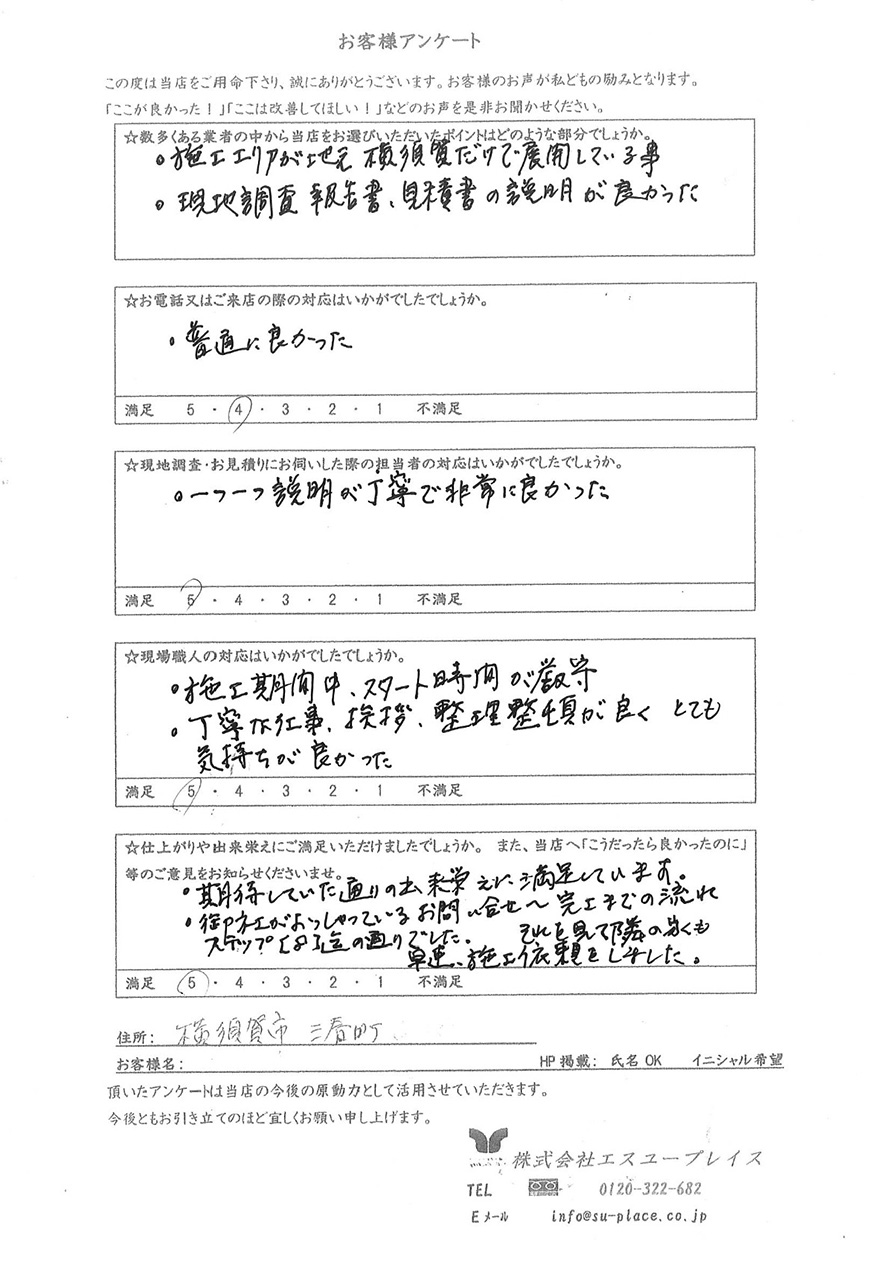 お客様アンケート
この度は当店をご用命下さり、誠にありがとうございます。お客様のお声が私どもの励みとなります。
「ここが良かった！」「ここは改善してほしい！」などのお声を是非お聞かせください。
☆数多くある業者の中から当店をお選びいただいたポイントはどのような部分でしょうか。
・施工エリアが地元横須賀だけで展開している事
・現地調査報告書、見積書の説明が良かった
☆お電話又はご来店の際の対応はいかがでしたでしょうか。
・普通に良かった
満足 5・4・3・2・1 不満足
☆現地調査・お見積りにお伺いした際の担当者の対応はいかがでしたでしょうか。
・一つ一つ説明が丁寧で非常に良かった
満足 5・4・3・2・1 不満足
☆現場職人の対応はいかがでしたでしょうか。
・施工期間中、スタート時間が厳守
・丁寧な仕事、挨拶、整理整頓が良く とても
気持ちが良かった
満足 5・4・3・2・1 不満足
☆仕上がりや出来栄えにご満足いただけましたでしょうか。 また、当店へ「こうだったら良かったのに」
等のご意見をお知らせくださいませ。
・期待していた通りの出来栄えに満足しています。
がおっしゃっているお問い合せへ完工までの流れ
ステップ の通りでした。 それを見て隣の
早速、施工依頼をしました。
満足 5・4・3・2・1 不満足
住所: 横須賀市 三春町
お客様名: HP掲載: 氏名OK イニシャル希望
頂いたアンケートは当店の今後の原動力として活用させていただきます。
今後ともお引き立てのほど宜しくお願い申し上げます。
株式会社エスユープレイス
TEL 0120-322-682
Eメール info@su-place.co.jp